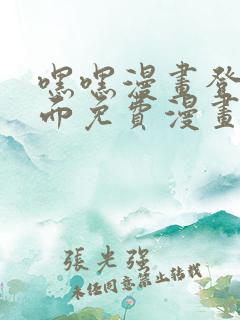 嘿嘿漫畫登
而免費漫畫
張光强
未經同意禁止轉載